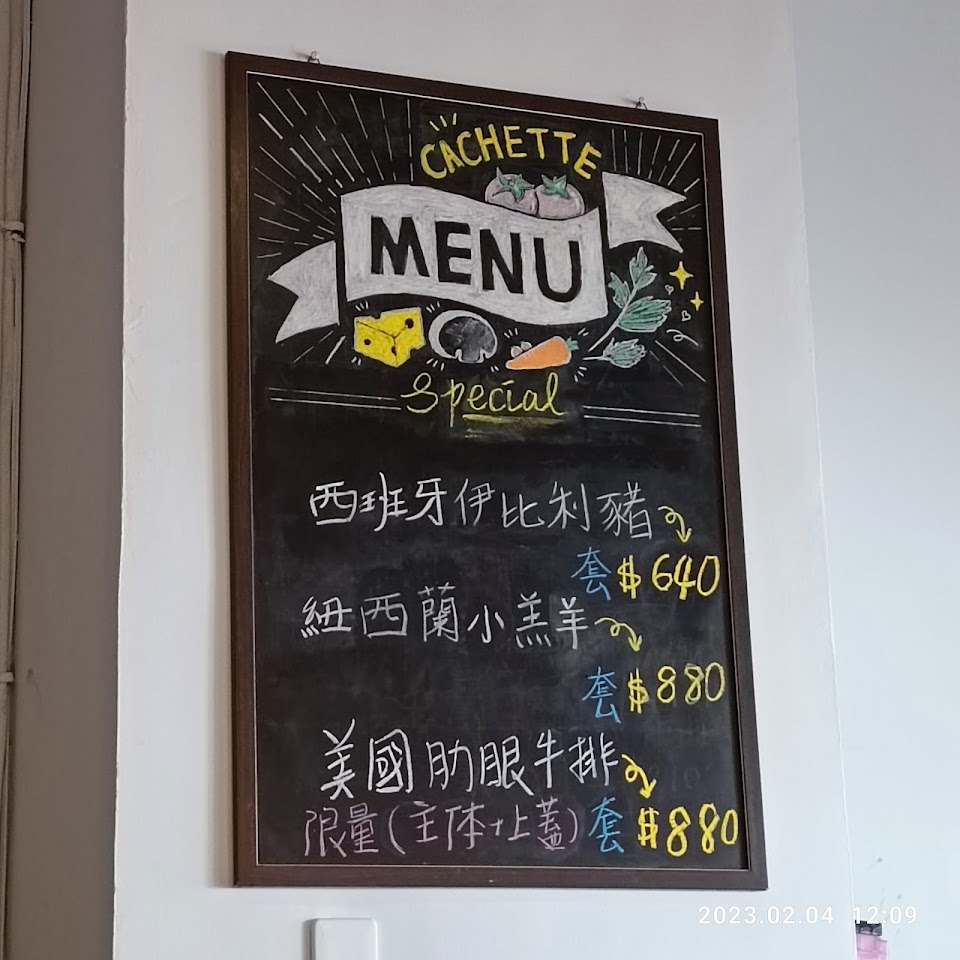 CACHETTE
MENU
Special
西班牙伊比利豬
套 $640
紐西蘭小羔羊
套 $880
美國肋眼牛排
限量(主体+上蓋) 套 $880
2023.02.04 12:09